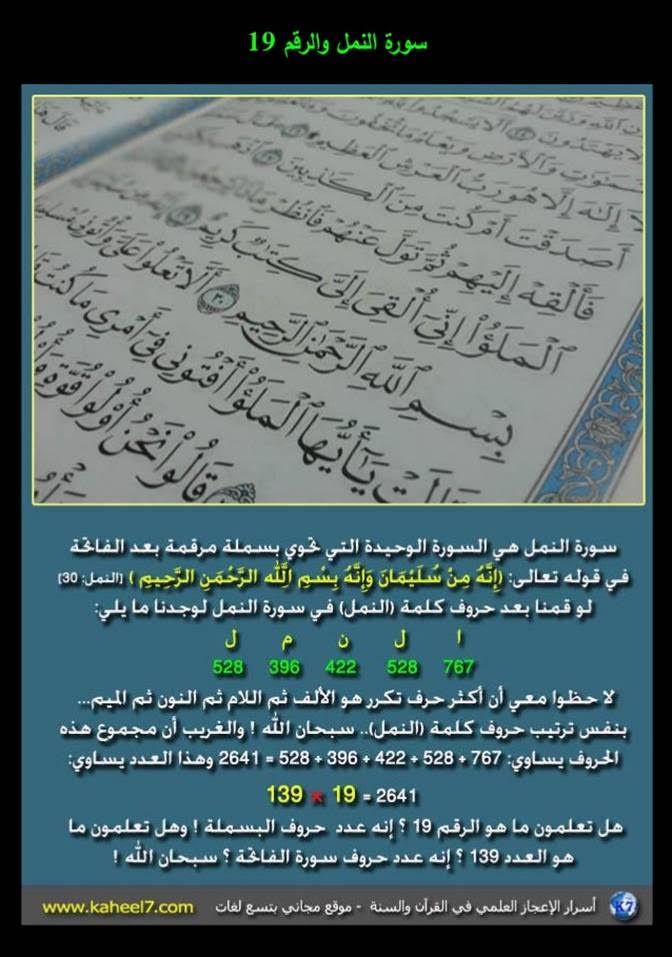 سورة النمل والرقم 19
لَا إِلَٰهَ إِلَّا هُوَ رَبُّ الْعَرْشِ الْعَظِيمِ
أَصَدَقْتَ أَمْ كُنتَ مِنَ الْكَاذِبِينَ
فَأَلْقِهْ إِلَيْهِمْ ثُمَّ تَوَلَّ عَنْهُمْ فَانظُرْ
الْمَلَؤُا إِنِّي أُلْقِيَ إِلَيَّ كِتَابٌ كَرِيمٌ
بِسْمِ اللَّهِ الرَّحْمَٰنِ الرَّحِيمِ ٣٠ أَلَّا تَعْلُوا عَلَيَّ وَأْتُونِي
قَالَتْ يَا أَيُّهَا الْمَلَؤُا أَفْتُونِي فِي أَمْرِي مَا كُنتُ
قَالُوا نَحْنُ أُولُوا قُوَّةٍ
سورة النمل هي السورة الوحيدة التي تحوي بسملة مرقمة بعد الفاتحة
في قوله تعالى: (إِنَّهُ مِنْ سُلَيْمَانَ وَإِنَّهُ بِسْمِ اللَّهِ الرَّحْمَنِ الرَّحِيمِ) [النمل: 30]
لو قمنا بعد حروف كلمة (النمل) في سورة النمل لوجدنا ما يلي:
ا ل ن م ل
767 528 422 396 528
لا حظوا معي أن أكثر حرف تكرر هو الألف ثم اللام ثم النون ثم الميم...
بنفس ترتيب حروف كلمة (النمل).. سبحان الله ! والغريب أن مجموع هذه
الحروف يساوي: 767 + 528 + 422 + 396 + 528 = 2641 وهذا العدد يساوي:
2641 = 19 × 139
هل تعلمون ما هو الرقم 19 ؟ إنه عدد حروف البسملة ! وهل تعلمون ما
هو العدد 139 ؟ إنه عدد حروف سورة الفاتحة ؟ سبحان الله !
K7 أسرار الإعجاز العلمي في القرآن والسنة - موقع مجاني بتسع لغات www.kaheel7.com